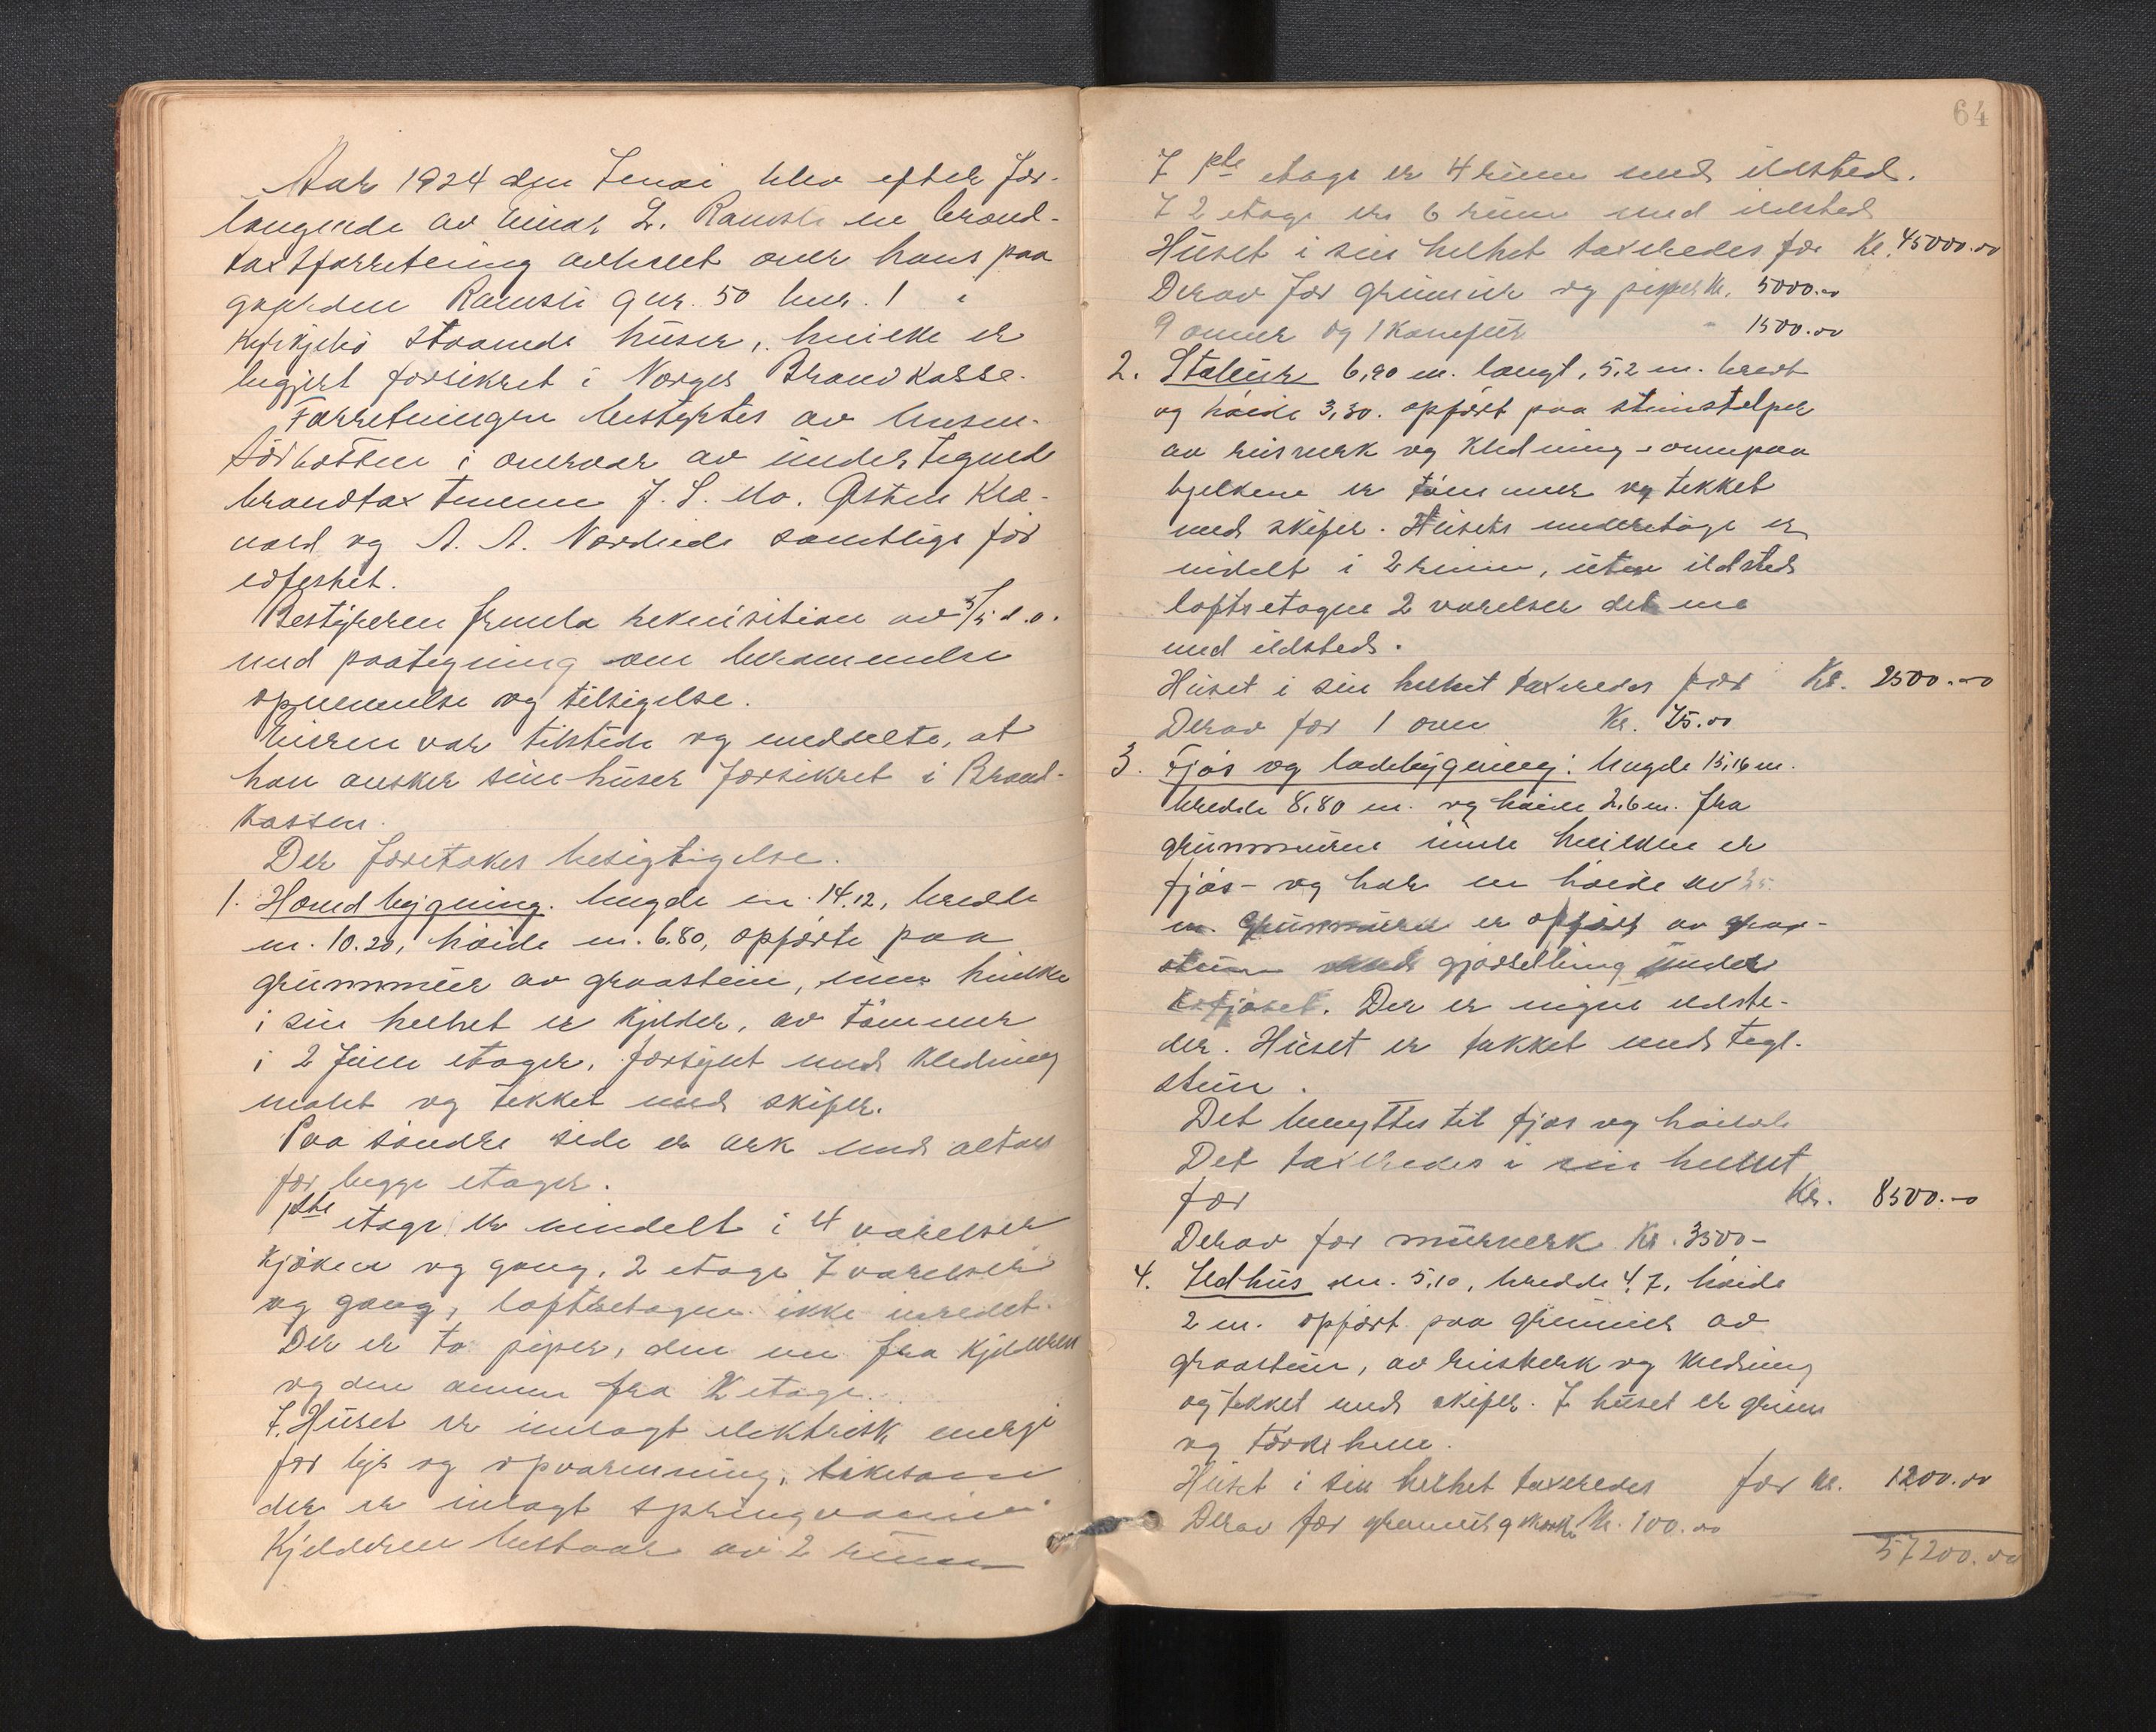 Aar 1924 den 7 mai blev efter for-
langende av Einar L. Ramsli en brand-
taxtforretning avholdt over hans paa
gaarden Ramsli gnr. 50 bnr. 1 i
staaende huser, hvilke er
begjert forsikret i Norges Brandkasse.
Forretningen bestyrtes av lensm.
i overvær av undertegnede
brandtaxtmenn J. S. Mo. Østen
og A. A. samtlige før
edfestet.
Bestyreren fremla rekvisition av 5/5 d.a.
med paategning om berammelse
opnevnelse og tilsigelse.
Eieren var tilstede og meddelte, at
han ønsker sine huser forsikret i Brand-
kassen.
Der foretokes besigtigelse.
1. Hovedbygning. lengde m. 14,12, bredde
m. 10.20, høide m. 6.80, opførte paa
grunnmur av graastein, hvilke
i sin helhet er kjelder, av tømmer
i 2 etager, forsynt med kledning
malet og tekket med skifer.
Paa søndre side er ark med altan
for begge etager.
1ste etage er inndelt i 4 værelser
kjøken og gang, 2 etage 7 værelser
og gang, loftsetagen ikke inredet.
Der er to piper, den ene fra kjelderen
og den annen fra 2 etage.
I Huset er innlagt elektrisk energi
for lys og opvarmning, likesom
der er inlagt springvann
Kjelderen bestaar av 2 rum
64
I 1ste etage er 4 rum med ildsted.
I 2 etage er 6 rum med ildsted
Huset i sin helhet taxeredes for Kr. 45000.00
Derav for grunmur og piper Kr. 5000.00
9 ovner og 1 komfur " 1500.00
2. Stabur 6,90 m. langt, 5,2 m. bredt
og høide 3,30. opført paa steinstolper
av reisverk og kledning ovenpaa
bjelkene er tømmer og tekket
med skifer. Husets underetage er
indelt i 2 rum, uten ildsted
loftsetagen 2 værelser det ene
med ildsted.
Huset i sin helhet taxeredes for Kr. 2500.00
Derav for 1 ovn Kr. 75.00
3. Fjøs og ladebygning: lengde 15,16 m.
bredde 8,80 m. og høide 2,6 m. fra
grunnmuren hvilken er
fjøs - og har en høide av 2,5
m. Grunnmuren er opført av graa-
stein med gjødselbinge under
fjøset. Der er ingen ildste-
der. Huset er takket med tegl-
stein.
Det benyttes til fjøs og høilade
Det taxeredes i sin helhet
for Kr. 8500.00
Derav for murverk Kr. 3500-
4. Ildhus m. 5,10, bredde 4,7, høide
2 m. opført paa grunmur av
graastein, av reisverk og kledning
og tekket med skifer. I huset er grue
og
Huset i sin helhet taxeredes for kr. 1200.00
Derav for grunmur og Kr. 100.00
57200.00